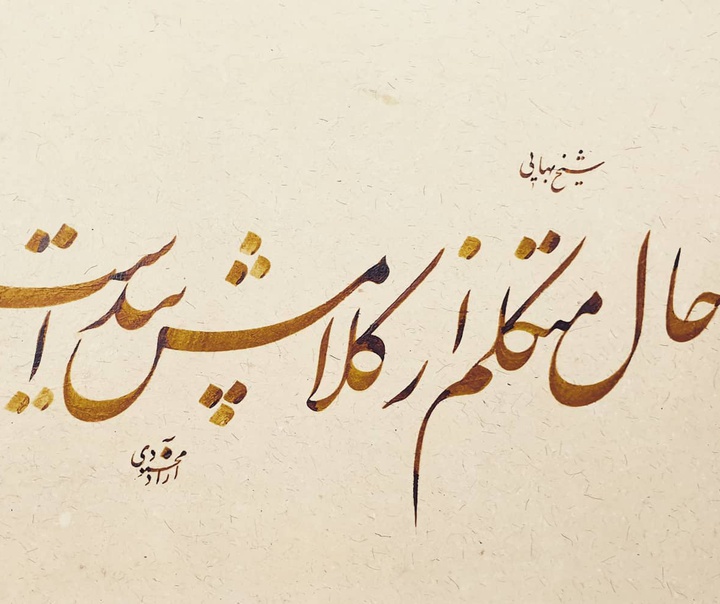 شیخ بهایی
حال متکلم از کلامش پیداست
آزاد محمودی